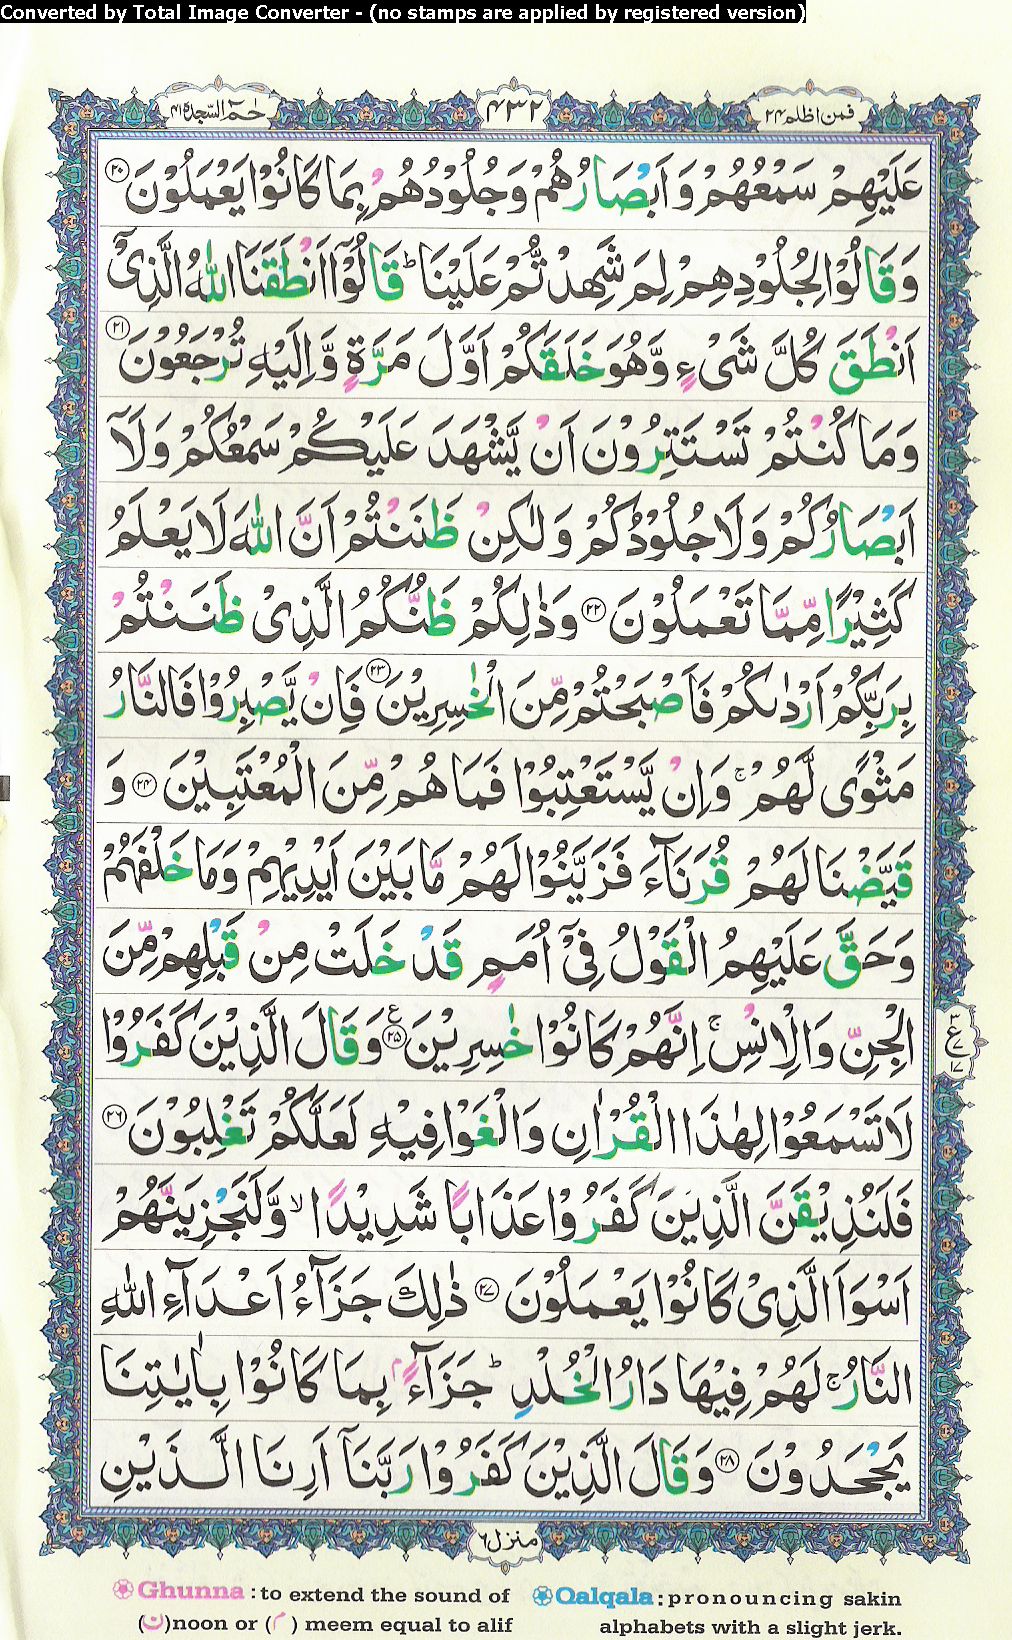 Converted by Total Image Converter - (no stamps are applied by registered version)
فمن اظلم ٢٤
٤٣٢
حٰمٓ السّجدة ٤١
عَلَيْهِمْ سَمْعُهُمْ وَاَبْصَارُهُمْ وَجُلُوْدُهُمْ بِمَا كَانُوْا يَعْمَلُوْنَ ﴿٢٠﴾
وَقَالُوْا لِجُلُوْدِهِمْ لِمَ شَهِدْتُّمْ عَلَيْنَا ؕ قَالُوْٓا اَنْطَقَنَا اللّٰهُ الَّذِيْٓ
اَنْطَقَ كُلَّ شَيْءٍ وَّهُوَ خَلَقَكُمْ اَوَّلَ مَرَّةٍ وَّاِلَيْهِ تُرْجَعُوْنَ ﴿٢١﴾
وَمَا كُنْتُمْ تَسْتَتِرُوْنَ اَنْ يَّشْهَدَ عَلَيْكُمْ سَمْعُكُمْ وَلَآ
اَبْصَارُكُمْ وَلَا جُلُوْدُكُمْ وَلٰكِنْ ظَنَنْتُمْ اَنَّ اللّٰهَ لَا يَعْلَمُ
كَثِيْرًا مِّمَّا تَعْمَلُوْنَ ﴿٢٢﴾ وَذٰلِكُمْ ظَنُّكُمُ الَّذِيْ ظَنَنْتُمْ
بِرَبِّكُمْ اَرْدٰىكُمْ فَاَصْبَحْتُمْ مِّنَ الْخٰسِرِيْنَ ﴿٢٣﴾ فَاِنْ يَّصْبِرُوْا فَالنَّارُ
مَثْوًى لَّهُمْ ۚ وَاِنْ يَّسْتَعْتِبُوْا فَمَا هُمْ مِّنَ الْمُعْتَبِيْنَ ﴿٢٤﴾ وَ
قَيَّضْنَا لَهُمْ قُرَنَآءَ فَزَيَّنُوْا لَهُمْ مَّا بَيْنَ اَيْدِيْهِمْ وَمَا خَلْفَهُمْ
وَحَقَّ عَلَيْهِمُ الْقَوْلُ فِيْٓ اُمَمٍ قَدْ خَلَتْ مِنْ قَبْلِهِمْ مِّنَ
الْجِنِّ وَالْاِنْسِ ۚ اِنَّهُمْ كَانُوْا خٰسِرِيْنَ ﴿٢٥﴾ ع وَقَالَ الَّذِيْنَ كَفَرُوْا
لَا تَسْمَعُوْا لِهٰذَا الْقُرْاٰنِ وَالْغَوْا فِيْهِ لَعَلَّكُمْ تَغْلِبُوْنَ ﴿٢٦﴾
فَلَنُذِيْقَنَّ الَّذِيْنَ كَفَرُوْا عَذَابًا شَدِيْدًا ۙ وَّلَنَجْزِيَنَّهُمْ
اَسْوَاَ الَّذِيْ كَانُوْا يَعْمَلُوْنَ ﴿٢٧﴾ ذٰلِكَ جَزَآءُ اَعْدَآءِ اللّٰهِ
النَّارُ ۚ لَهُمْ فِيْهَا دَارُ الْخُلْدِ ؕ جَزَآءًۢ بِمَا كَانُوْا بِاٰيٰتِنَا
يَجْحَدُوْنَ ﴿٢٨﴾ وَقَالَ الَّذِيْنَ كَفَرُوْا رَبَّنَآ اَرِنَا الَّذَيْنِ
٣
ع ٧
١٧
منزل ٦
Ghunna : to extend the sound of
(ن)noon or (م) meem equal to alif
Qalqala : pronouncing sakin
alphabets with a slight jerk.